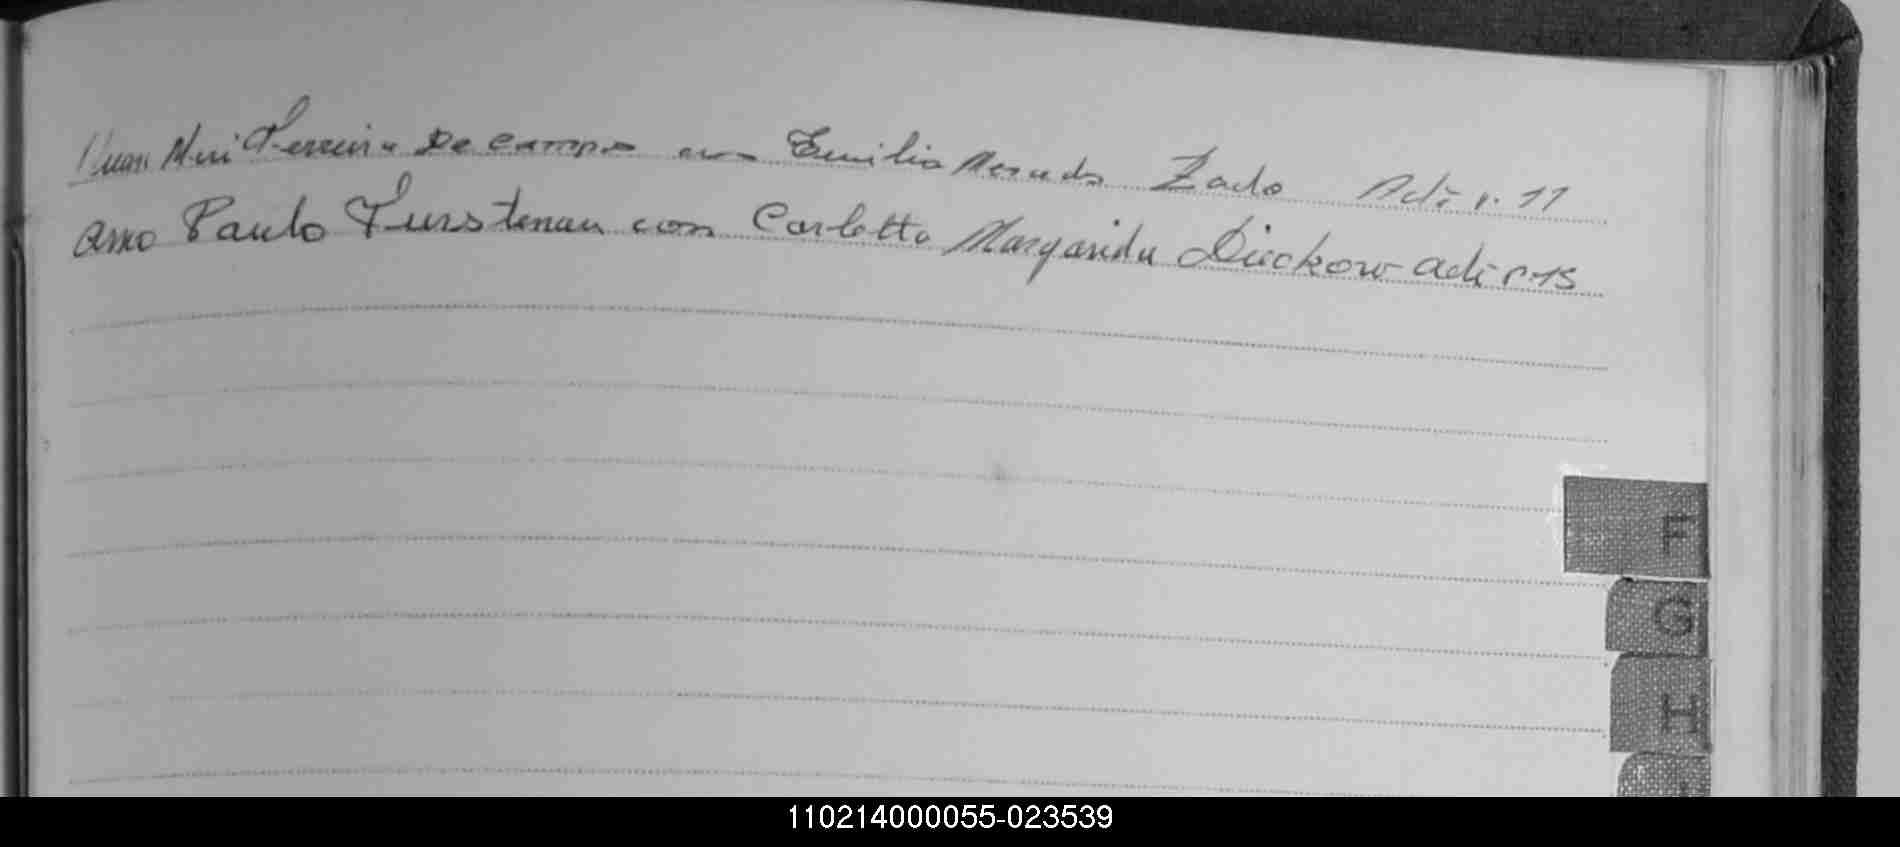 Juan Ferreira De campo con Emilia Zado Acta n. 11
Arno Paulo Furstenau con Carlotta Margarida Dieckow acta n. 15
F
G
H
110214000055-023539